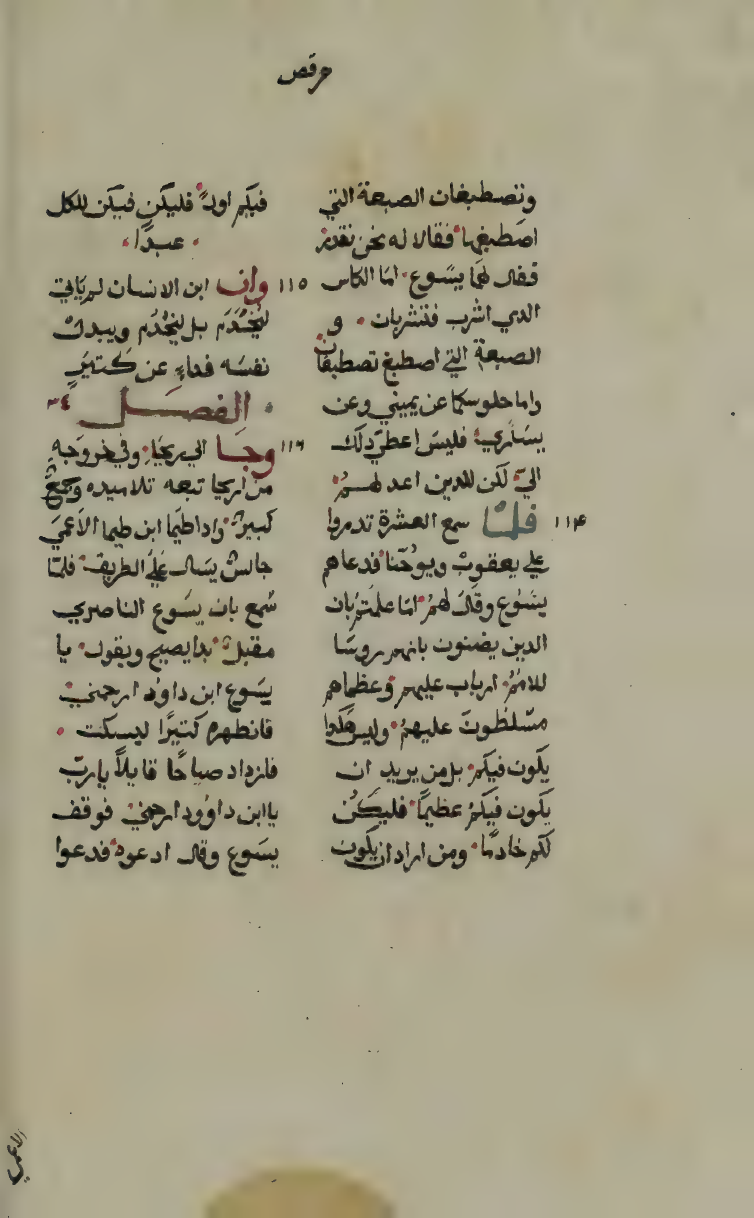 مرقص
وتصطبغان الصبعة التي
اصطبغها فقالا له نحن نقدر
فقال لهما يسوع اما الكاس
الدي اشرب فتشربان و
الصبعة التي اصطبغ تصطبغان
واما جلوسكما عن يميني وعن
يساري فليس اعطي دلك
الي لكن للدين اعد لهم
١١٤ فلما سمع العشرة تدمروا
علي يعقوب ويوحنا فدعاهم
يسوع وقال لهم اما علمتم بان
الدين يضنون بانهم روسا
للامم ارباب عليهم وعظماهم
مسلطون عليهم وليس هكدا
يكون فيكم بل من يريد ان
يكون فيكم عظيما فليكن
لكم خادما ومن اراد ان يكون
فيكم اولا فليكن للكل
عبدا
١١٥ وان ابن الانسان لم ياتي
ليخدم بل ليخدم ويبدل
نفسه فداء عن كتير
الفصل ٣٤
١١٦ وجا الي ريحا وفي خروجه
من اريحا تبعه تلاميده وجمع
كبير وادا طيما ابن طيما الاعمي
جالس يسال علي الطريق فلما
سمع بان يسوع الناصري
مقبل بدا يصيح ويقول يا
يسوع ابن داوود ارحمني
فانتهره كتيرا ليسكت
فازداد صياحا قايلا يا رب
يا ابن داوود ارحمني فوقف
يسوع وقال ادعوه فدعوا
الاعمي